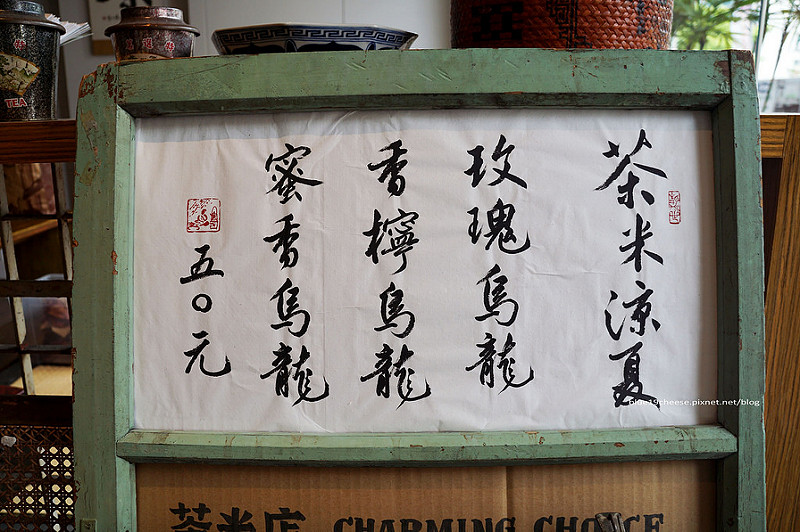 茶米涼夏
玫瑰烏龍
香檸烏龍
蜜香烏龍
五〇元
blue19cheese.pixnet.net/blog
茶米店 CHARMING CHOICE
TEA